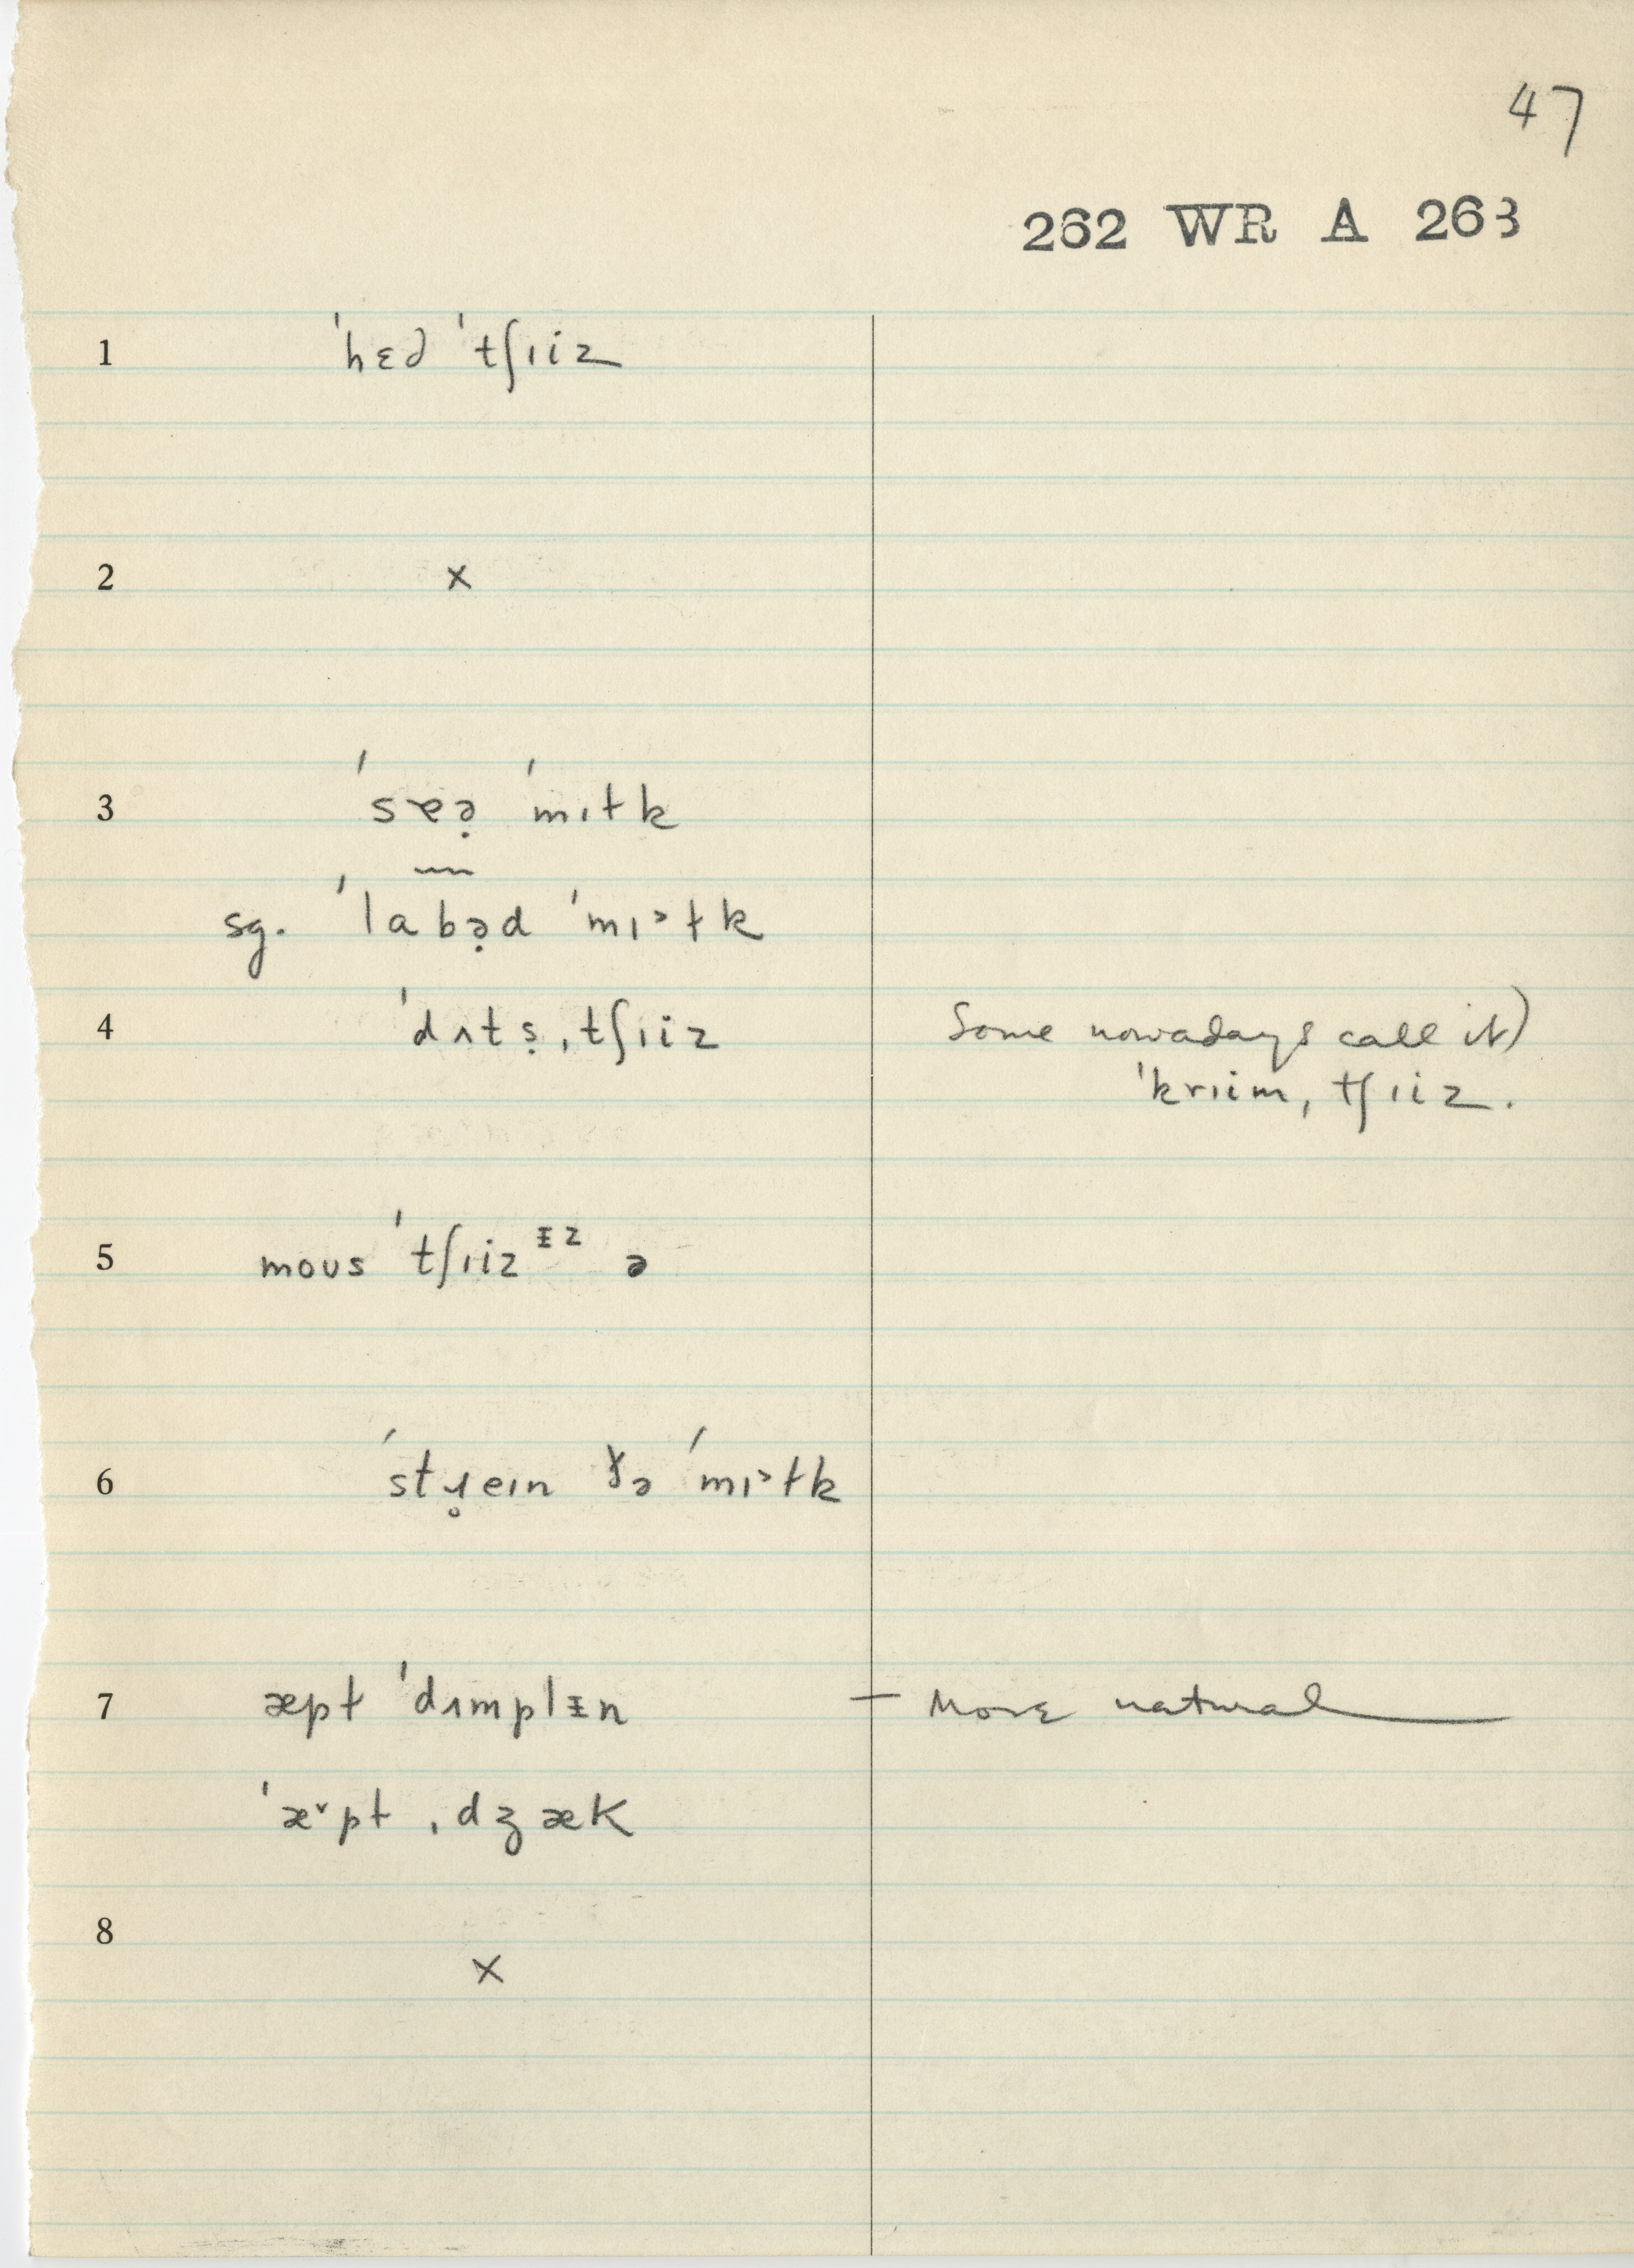 47
262 WR A 263
1 ˈhɛd ˈtʃɪiz
2 x
3 ˈsɐə̣ ˈmɪɫk
sg. ˈlabə̣d ˈmɪ˃ɫk
4 ˈdʌtṣˌtʃɪiz Some nowadays call it)
ˈkrɪimˌtʃɪiz.
5 moʊs ˈtʃɪizᵻz ə
6 ˈstɹ̥eɪn ðə ˈmɪ˃ɫk
7 æpɫ ˈdʌmplᵻn — More natural
ˈæ˅pɫ ˌdʒæk
8 x